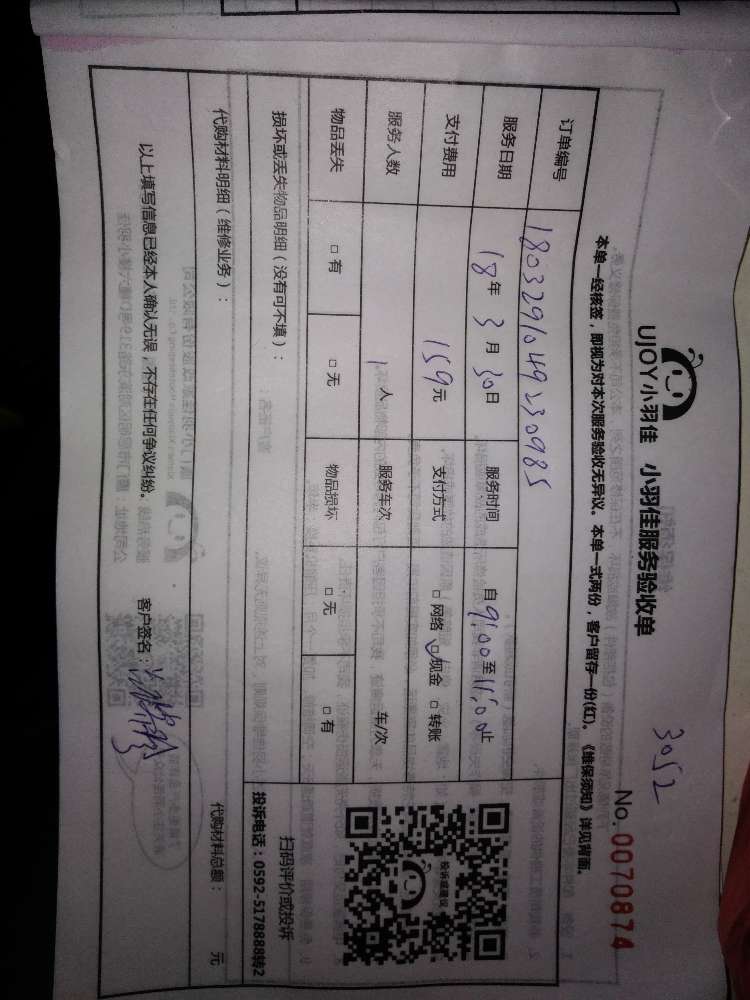 3052
UJOY小羽佳 小羽佳服务验收单 No. 0070874
本单一经核签，即视为对本次服务验收无异议。本单一式两份，客户留存一份(红)。《维保须知》详见背面。
订单编号 1803291049230985
服务日期 18年 3月 30日 服务时间 自9:00至11:00止
支付费用 159元 支付方式 □网络 ☑现金 □转账
服务人数 1人 服务车次 车/次
物品丢失 □有 □无 物品损坏 □无 □有
投诉或建议
扫码评价或投诉
投诉电话：0592-5178888转2
损坏或丢失物品明细（没有可不填）：
代购材料明细（维修业务）： 代购材料总额： 元
以上填写信息已经本人确认无误，不存在任何争议纠纷。 客户签名：